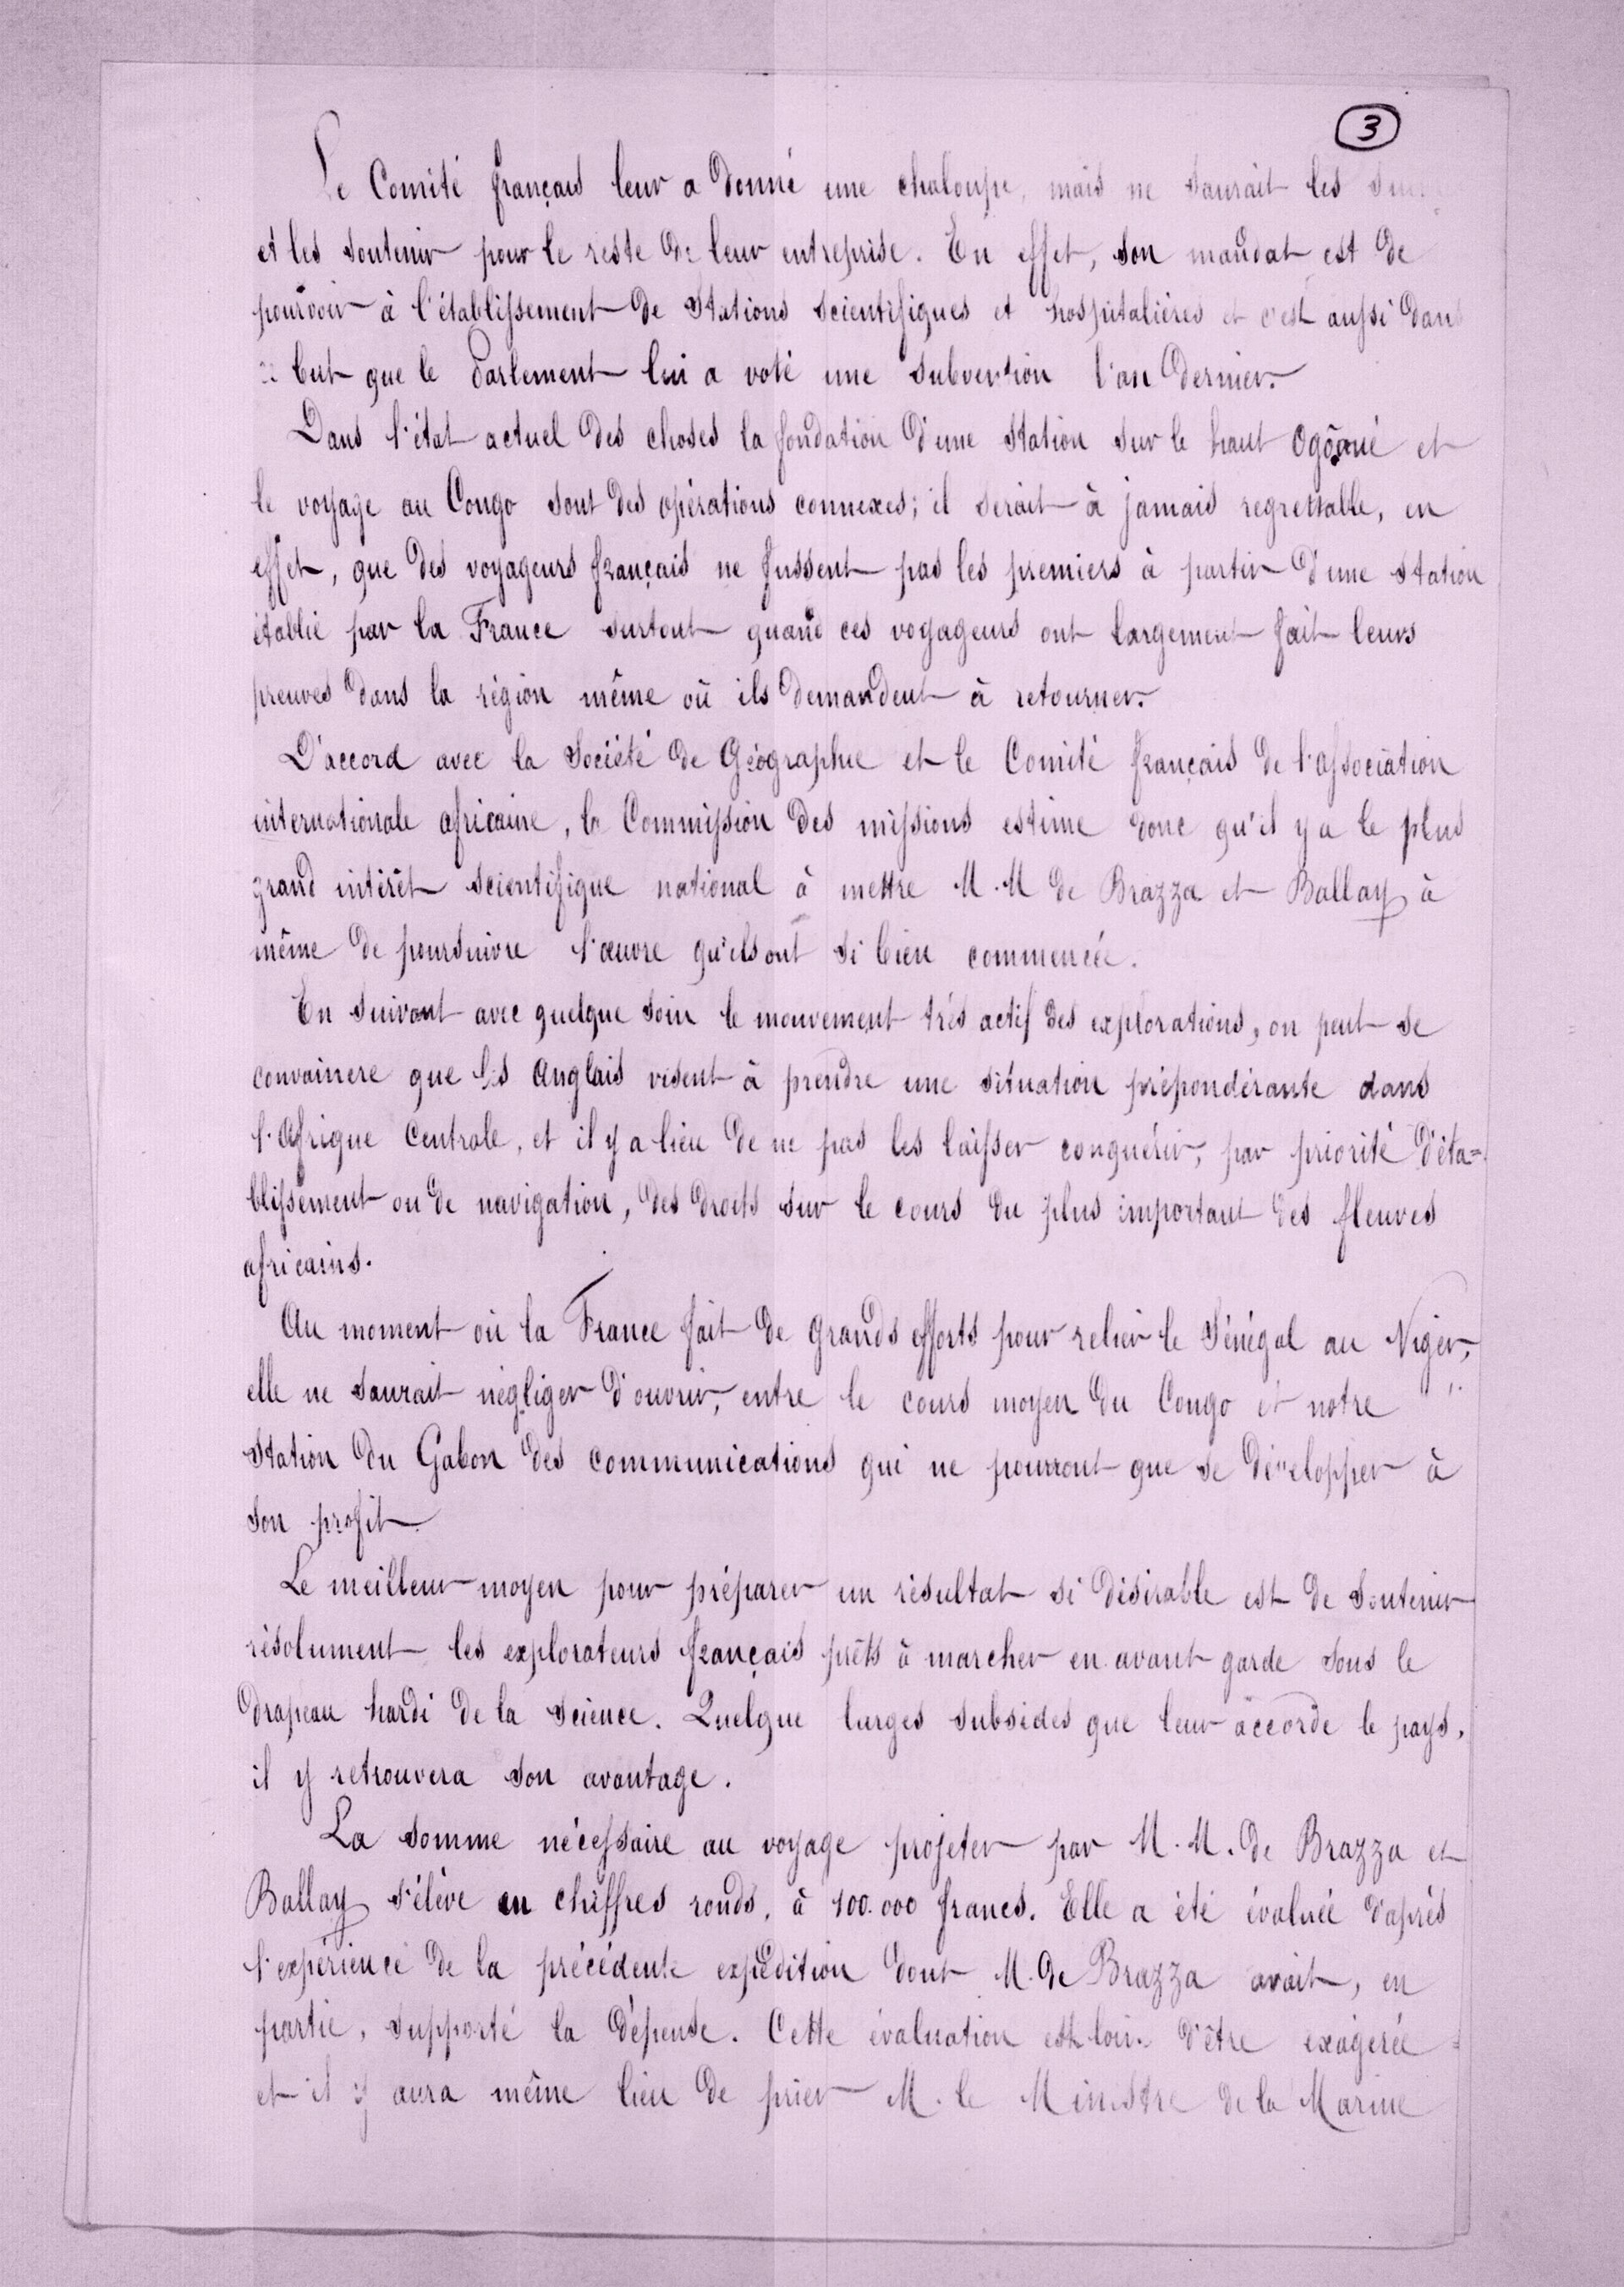 3
Le Comité français leur a donné une chaloupe, mais ne saurait les
et les soutenir pour le reste de leur entreprise. En effet, son mandat est de
pourvoir à l'établissement de Stations scientifiques et hospitalières et c'est aussi dans
ce but que le Parlement lui a voté une subvention l'an dernier.
Dans l'état actuel des choses la fondation d'une station sur le haut Ogôoué et
le voyage au Congo sont des opérations connexes; il serait à jamais regrettable, en
effet, que des voyageurs français ne fussent pas les premiers à partir d'une station
établie par la France surtout quand ces voyageurs ont largement fait leurs
preuves dans la région même où ils demandent à retourner.
D'accord avec la Société de Géographie et le Comité français de l'association
internationale africaine, la Commission des missions estime donc qu'il y a le plus
grand intérêt scientifique national à mettre M.M de Brazza et Ballay à
même de poursuivre l'œuvre qu'ils ont si bien commencée.
En suivant avec quelque soin le mouvement très actif des explorations, on peut se
convaincre que les Anglais visent à prendre une situation prépondérante dans
l'Afrique Centrale, et il y a lieu de ne pas les laisser conquérir, par priorité d'éta=
blissement ou de navigation, des droits sur le cours du plus important des fleuves
africains.
Au moment où la France fait de grands efforts pour relier le Sénégal au Niger,
elle ne saurait négliger d'ouvrir, entre le cours moyen du Congo et notre
station du Gabon des communications qui ne pourront que se développer à
son profit.
Le meilleur moyen pour préparer un résultat si désirable est de soutenir
résolument les explorateurs français prêts à marcher en avant garde sous le
drapeau hardi de la science. Quelque larges subsides que leur accorde le pays,
il y retrouvera son avantage.
La somme nécessaire au voyage projeter par M.M. de Brazza et
Ballay s'élève en chiffres ronds, à 100.000 francs. Elle a été évaluée d'après
l'expérience de la précédente expédition dont M. de Brazza avait, en
partie, supporté la dépense. Cette évaluation est loin d'être exagérée
et il y aura même lieu de prier M. le Ministre de la Marine